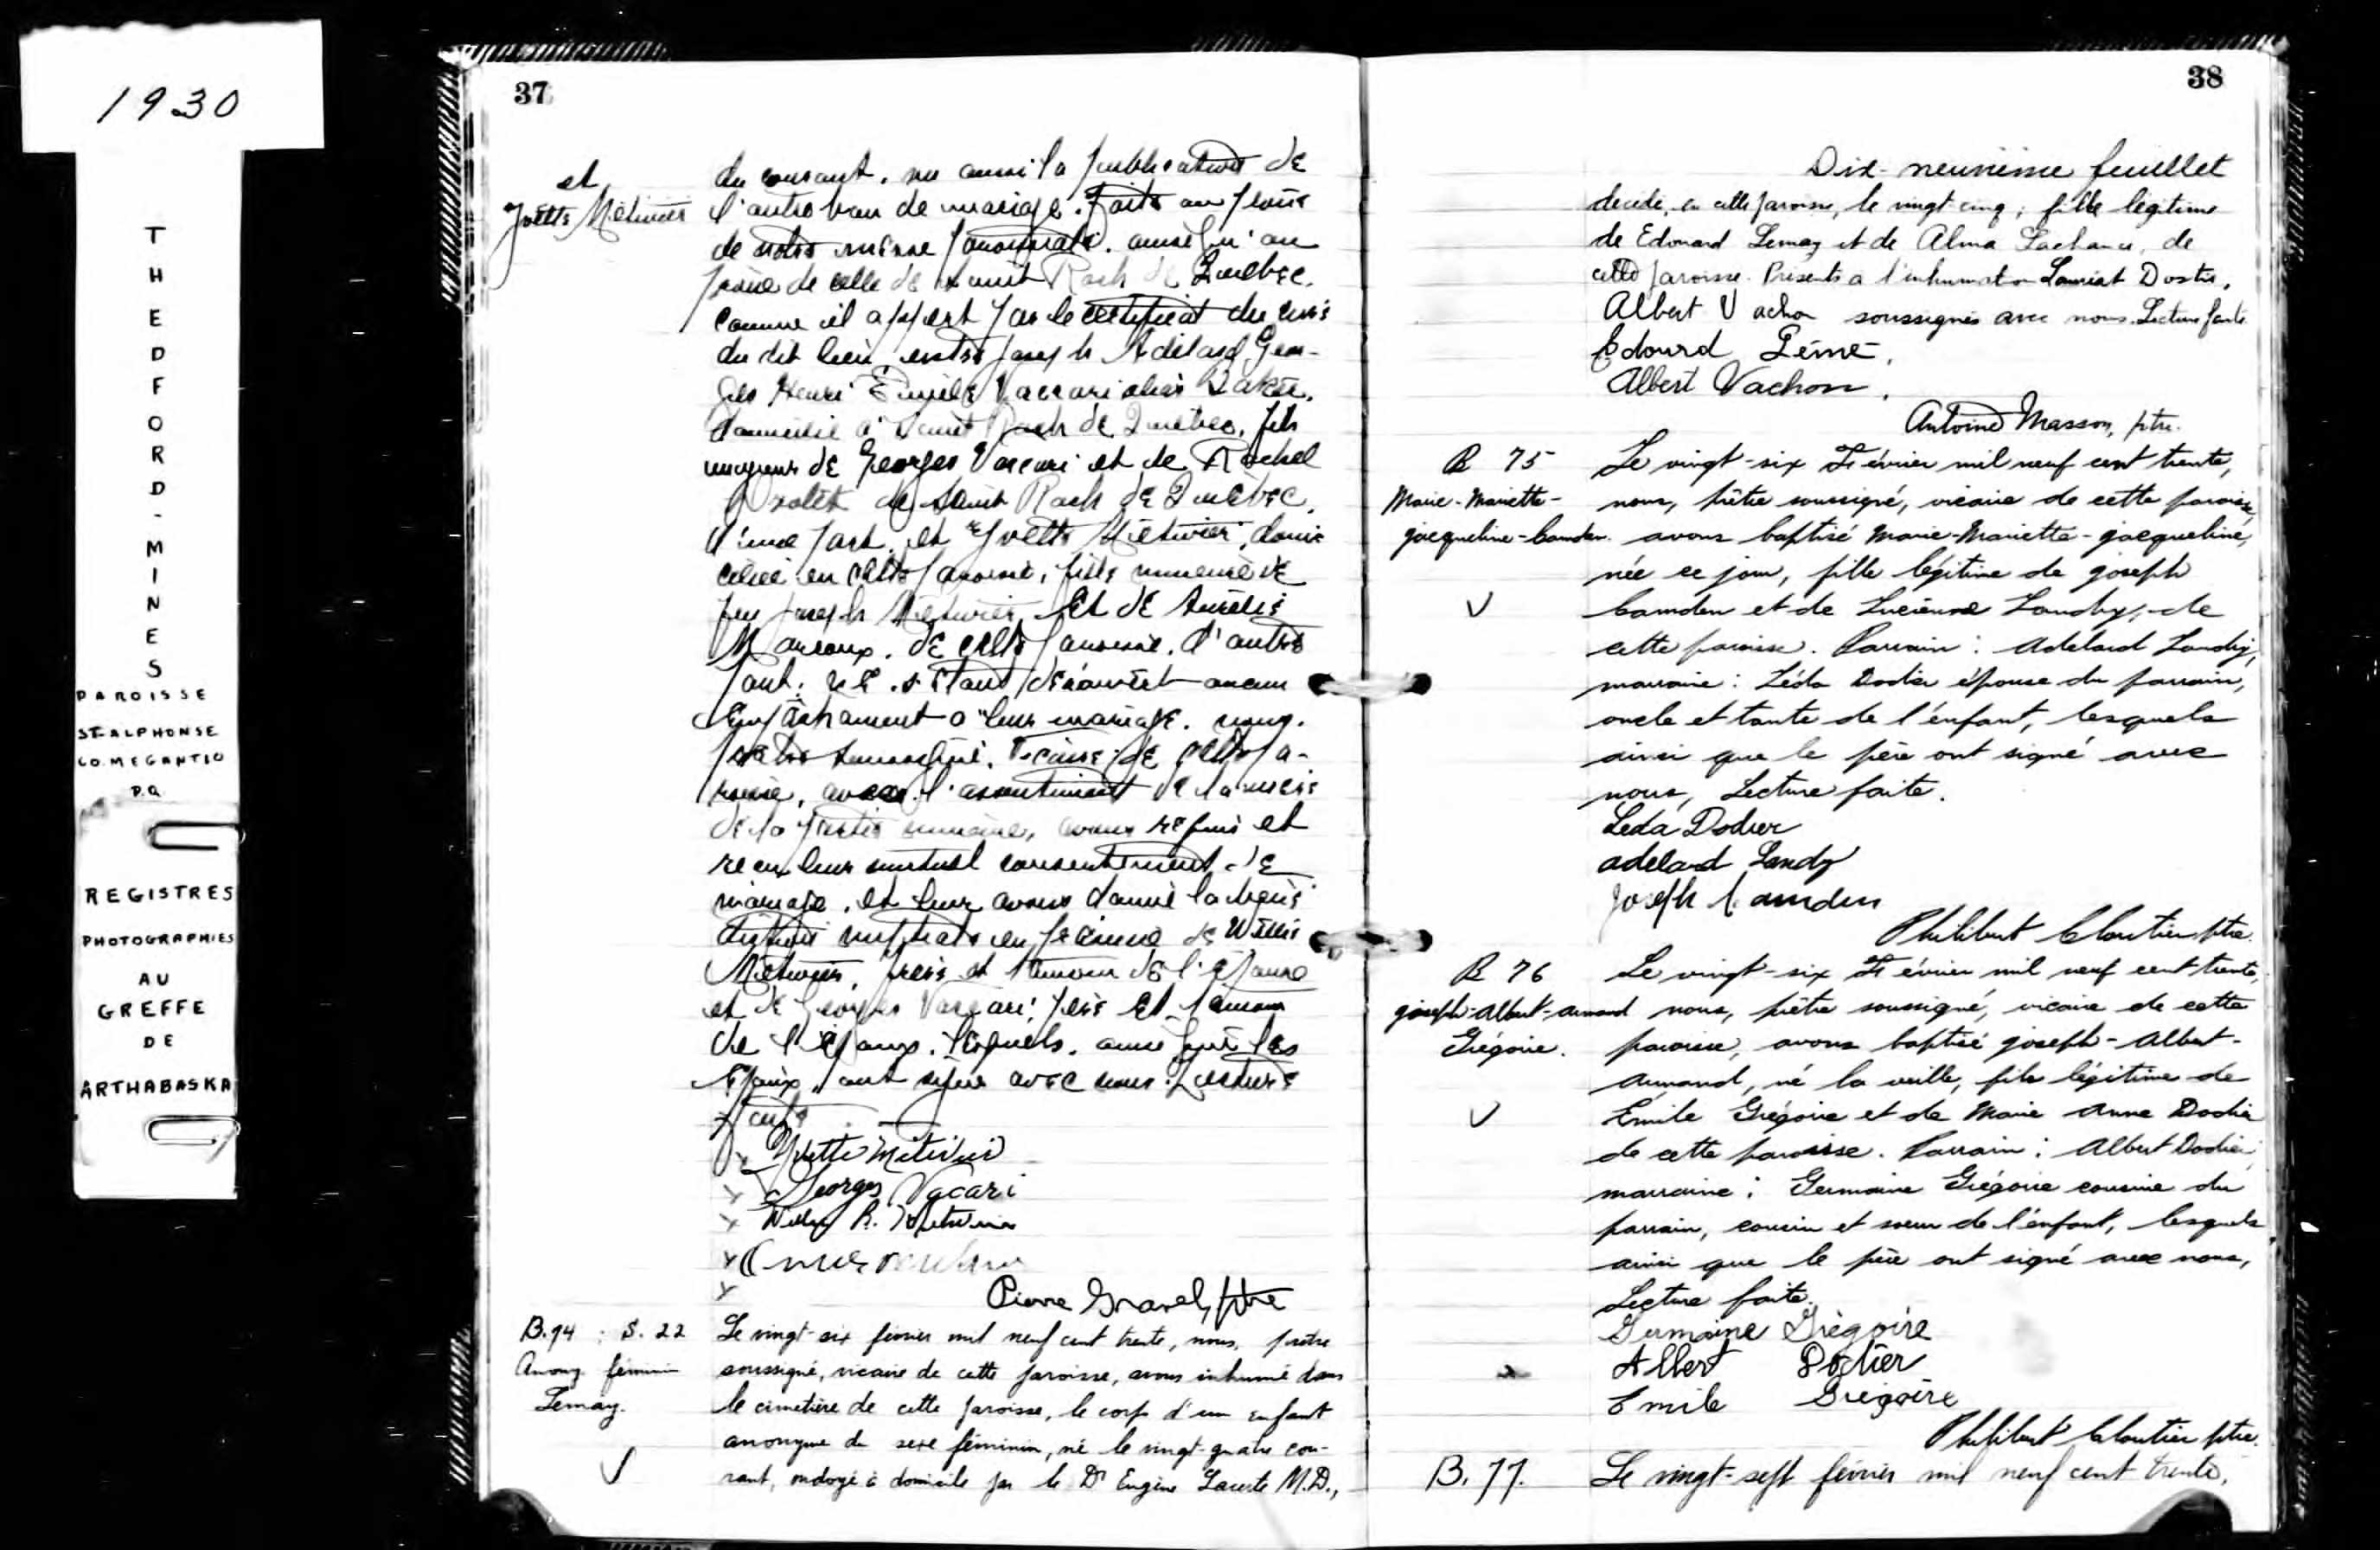 1930
THEDFORD-MINES
PAROISSE
ST-ALPHONSE
CO. MEGANTIC
P.Q.
REGISTRES
PHOTOGRAPHIES
AU
GREFFE
DE
ARTHABASKA
37
et
Yvette Métivier
du courant, vu aussi la publication de
l'autre ban de mariage, faite au prône
de notre messe paroissiale, ainsi qu'au
prône de celle de Saint Roch de Québec,
comme il appert par le certificat du curé
du dit lieu, entre Joseph Adélard Geor-
ges Henri Emile Vaccari alias
domicilié à Saint Roch de Québec, fils
majeur de Georges Vaccari et de Rachel
de Saint Roch de Québec,
d'une part, et Yvette Métivier, domi-
ciliée en cette paroisse, fille mineure de
feu Joseph Métivier et de Aurélie
Marcoux, de cette paroisse, d'autre
part; ne s'étant découvert aucun
empêchement à leur mariage, nous,
prêtre soussigné, vicaire de cette pa-
roisse, avec l'assentiment de la mère
de la partie mineure, avons requis et
reçu leur mutuel consentement de
mariage, et leur avons donné la béné-
diction nuptiale en présence de Willie
Métivier, frère et témoin de l'épouse
et de Georges Vaccari, père et témoin
de l'époux, lesquels, ainsi que les
époux, ont signé avec nous. Lecture
faite.
x Yvette Métivier
x Georges Vacari
x Willy R. Métivier
x
x
Pierre Gravel, ptre
B. 74 : S. 22
Anony. féminin
Lemay.
Le vingt-six février mil neuf cent trente, nous, prêtre
soussigné, vicaire de cette paroisse, avons inhumé dans
le cimetière de cette paroisse, le corps d'un enfant
anonyme du sexe féminin, né le vingt-quatre cou-
rant, ondoyé à domicile par le Dr Eugène Lacerte M.D.,
38
Dix-neuvième feuillet
décédé, en cette paroisse, le vingt-cinq; fille légitime
de Edouard Lemay et de Alma Lachance, de
cette paroisse. Présents à l'inhumation Lauréat Dostie,
Albert Vachon soussignés avec nous. Lecture faite.
Edourd
Albert Vachon.
Antoine Masson, ptre.
B 75
Marie-Mariette-
jacqueline-Camden.
Le vingt-six Février mil neuf cent trente,
nous, prêtre soussigné, vicaire de cette paroisse,
avons baptisé Marie-Mariette-jacqueline,
née ce jour, fille légitime de joseph
Camden et de Lucienne Landry, de
cette paroisse. Parrain: Adelard Landry,
marraine: Léda Dodier épouse du parrain,
oncle et tante de l'enfant, lesquels
ainsi que le père ont signé avec
nous, Lecture faite.
Leda Dodier
adelard Landry
Joseph Camden
Philibert Cloutier ptre.
B 76
joseph-Albert-Armand
Grégoire.
Le vingt-six Février mil neuf cent trente,
nous, prêtre soussigné, vicaire de cette
paroisse, avons baptisé joseph-Albert-
Armand, né la veille, fils légitime de
Emile Grégoire et de Marie Anne Dodier
de cette paroisse. Parrain: Albert Dodier,
marraine: Germaine Grégoire cousine du
parrain, cousin et soeur de l'enfant, lesquels
ainsi que le père ont signé avec nous,
Lecture faite.
Germaine Grégoire
Albert Dodier
Emile Grégoire
Philibert Cloutier ptre.
B. 77.
Le vingt-sept février mil neuf cent trente,